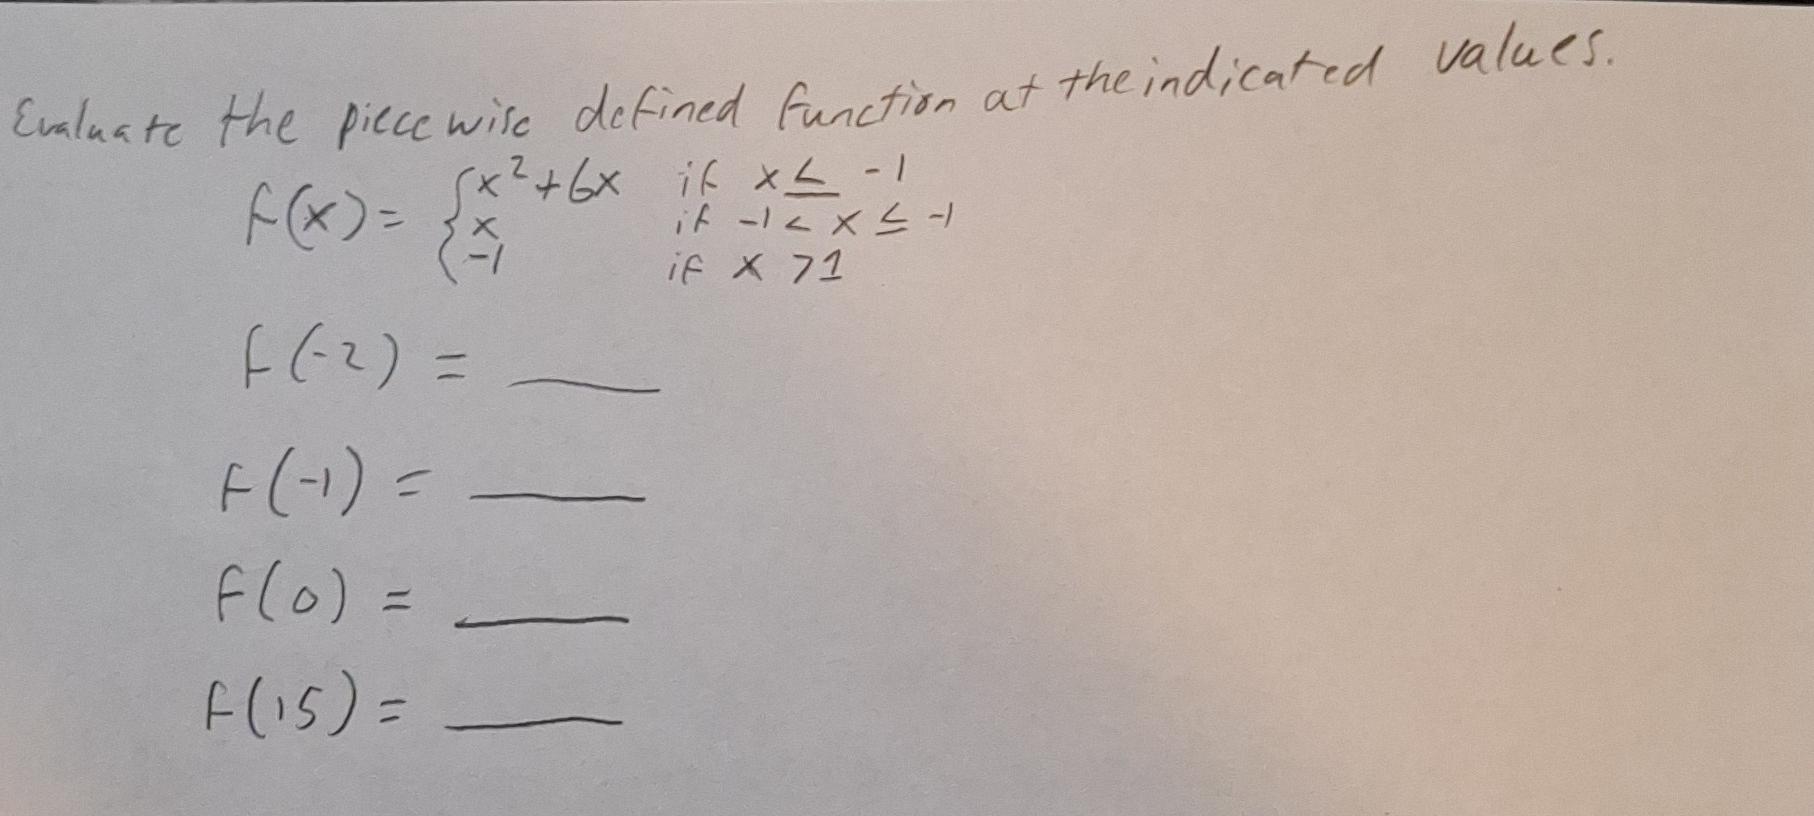 Evaluate the piecewise defined function at the indicated values.
f(x) = { x² + 6x if x ≤ -1
x if -1 < x ≤ -1
-1 if x > 1
f(-2) = ___
f(-1) = ___
f(0) = ___
f(15) = ___